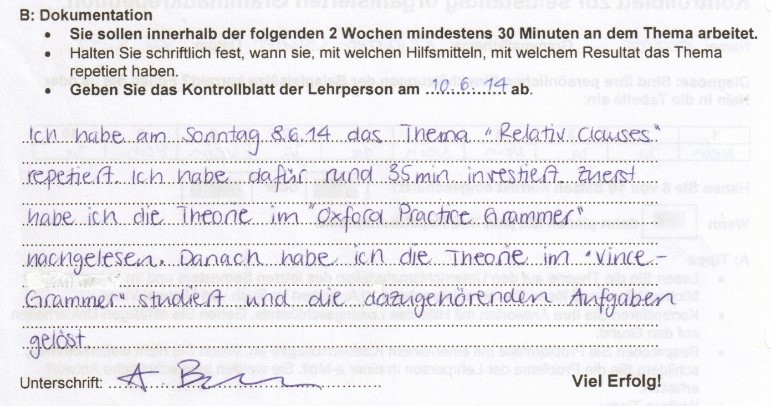 B: Dokumentation
• Sie sollen innerhalb der folgenden 2 Wochen mindestens 30 Minuten an dem Thema arbeitet.
• Halten Sie schriftlich fest, wann sie, mit welchen Hilfsmitteln, mit welchem Resultat das Thema
repetiert haben.
• Geben Sie das Kontrollblatt der Lehrperson am 10.6.14 ab.
Ich habe am Sonntag 8.6.14 das Thema "Relativ Clauses"
repetiert. Ich habe dafür rund 35min investiert. Zuerst
habe ich die Theorie im "Oxford Practice Grammer"
nachgelesen. Danach habe ich die Theorie im "Vince-
Grammer" studiert und die dazugehörenden Aufgaben
gelöst.
Unterschrift: Viel Erfolg!